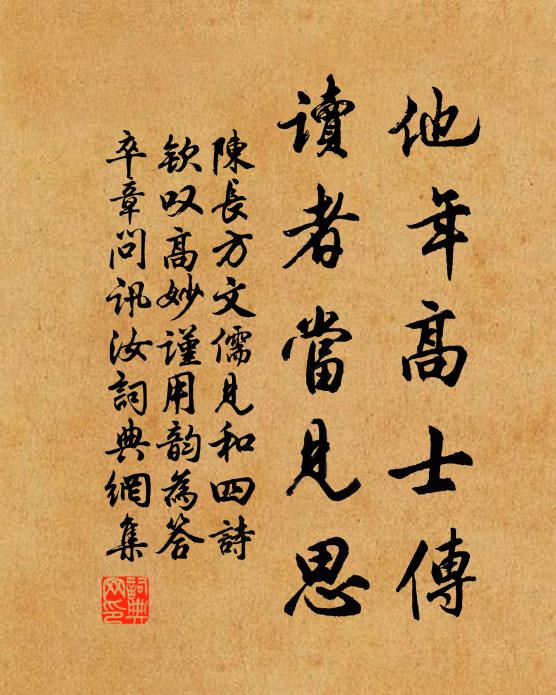 他年高士傳
讀者當見思
陳長方文儒見和四詩
欽叹高妙謹用韵為答
卒章問訊汝詞典網集
詞典网印